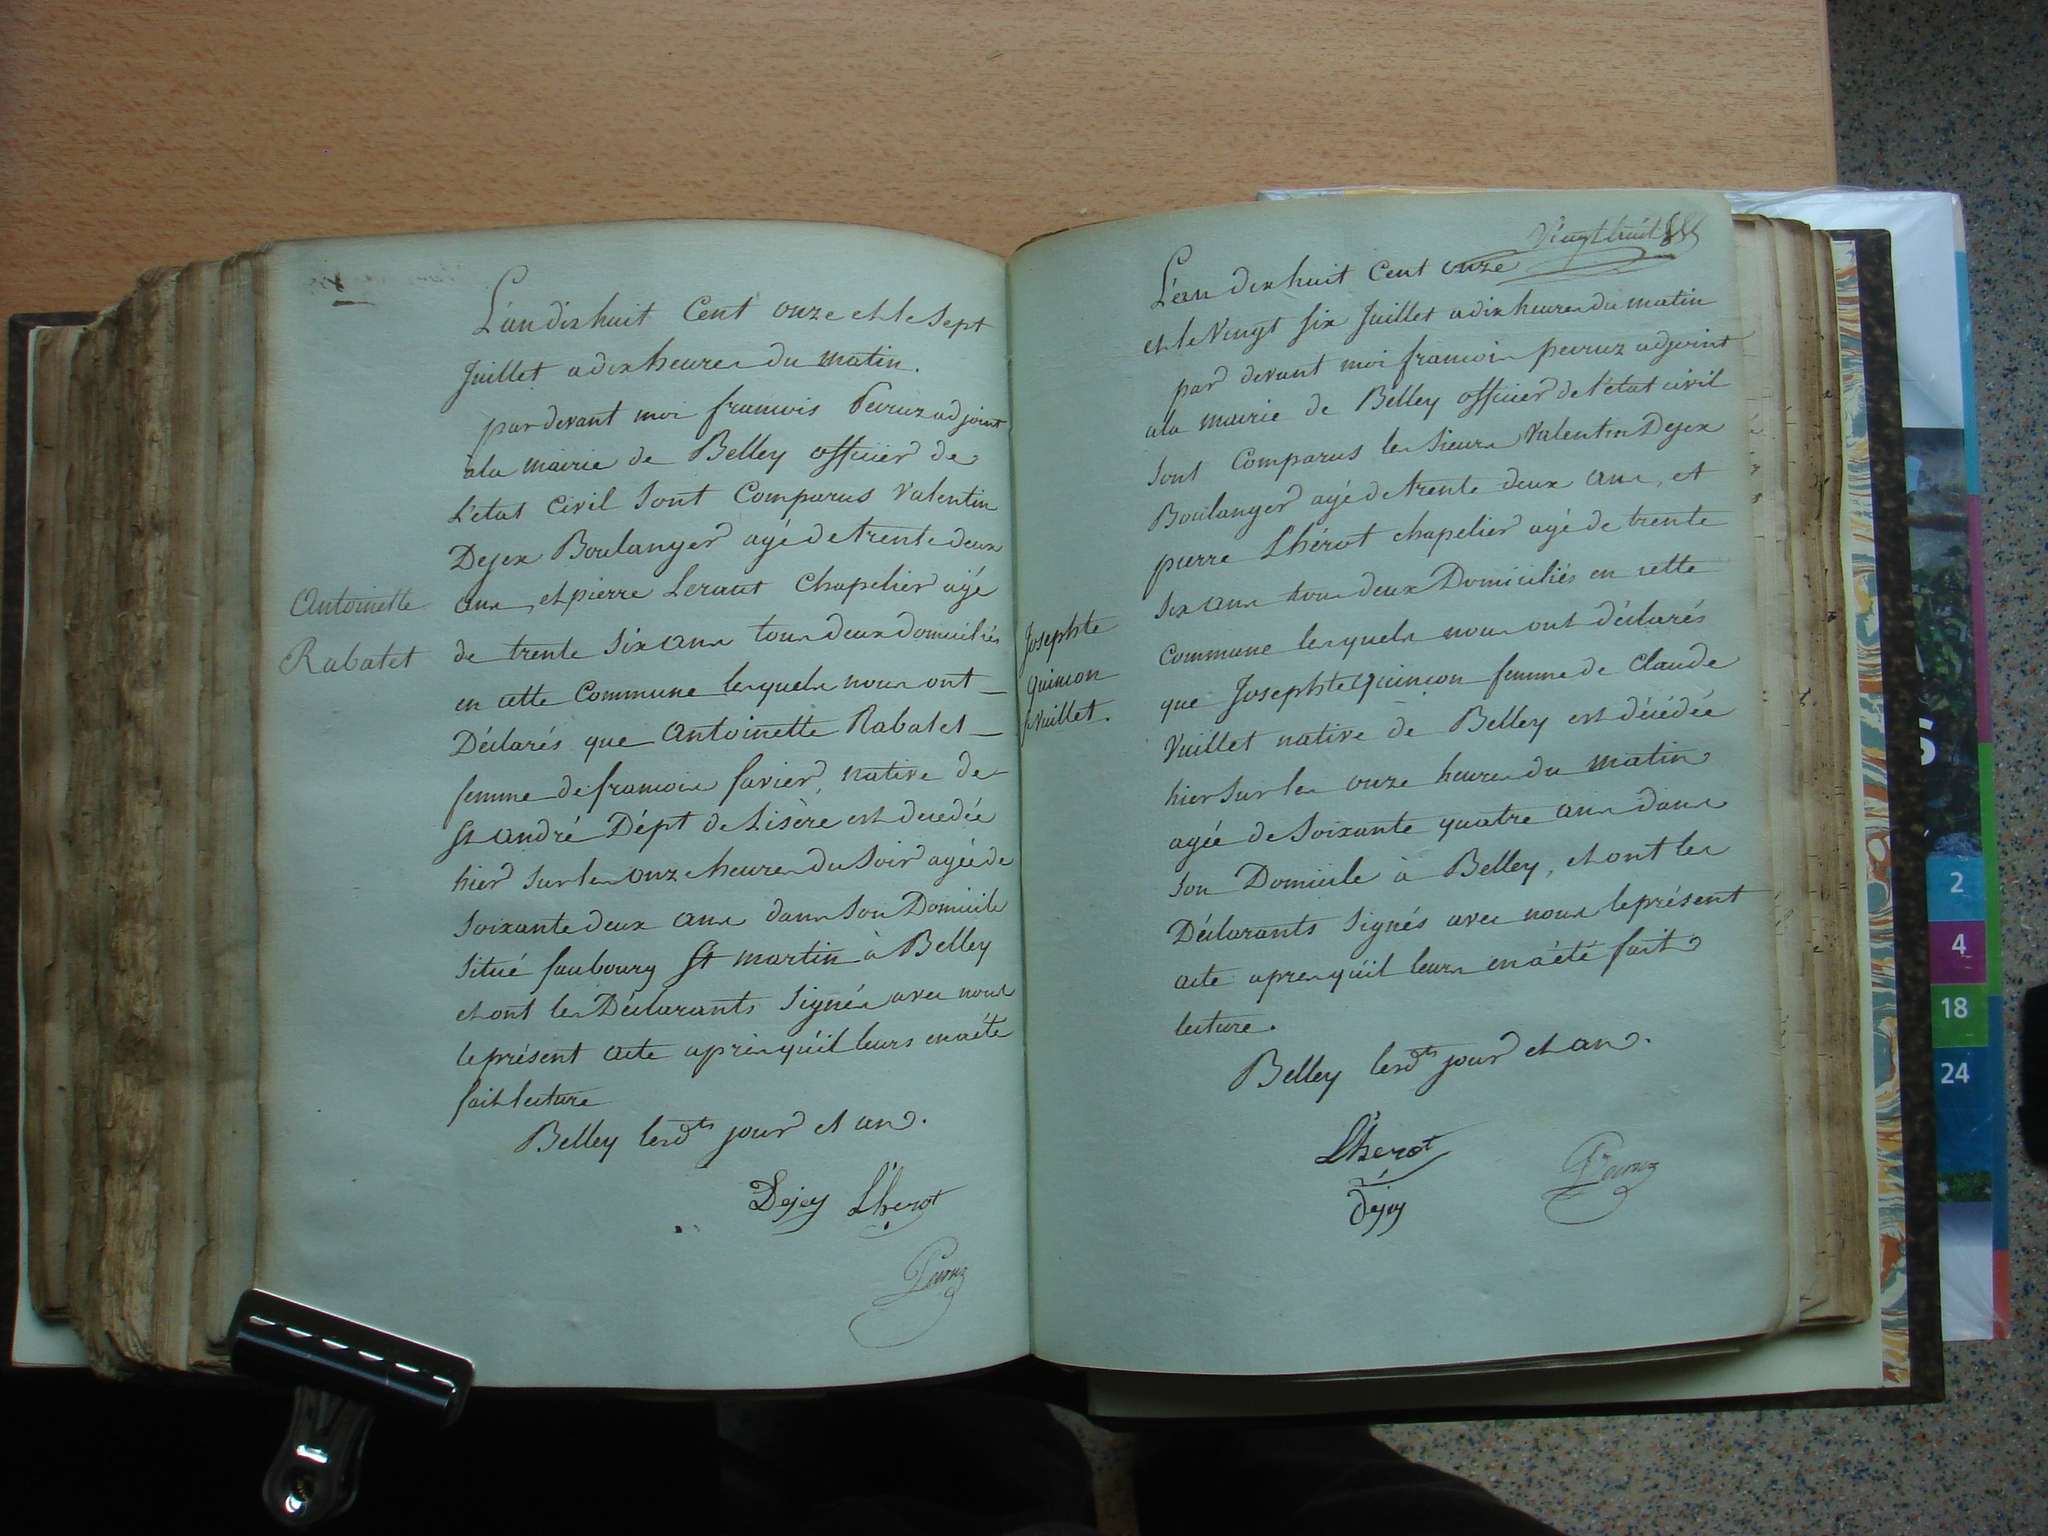 L'an dix huit Cent onze et le sept
Juillet a dix heures du matin.
par devant moi francois Peruz adjoint
a la mairie de Belley officier de
L'etat civil sont Comparus Valentin
Dejex Boulanger agé de trente deux
ans, et pierre Leraut Chapelier agé
de trente six ans tous deux domiciliés
en cette Commune lesquels nous ont
Déclarés que Antoinette Rabatet
femme de francois favier, native de
St andré Dépt de Lisère est décédée
hier sur les onze heures du soir agée de
soixante deux ans dans son Domicile
situé faubourg St martin à Belley
et ont les Déclarants signés avec nous
le présent acte apres qu'il leurs en a été
fait lecture
Belley lesdts jour et an.
Dejey Lherot
Peruz
Antoinette
Rabatet
Vingt huit
L'an dix huit Cent onze
et le Vingt six Juillet a dix heures du matin
par devant moi francois peruz adjoint
a la mairie de Belley officier de l'état civil
sont Comparus les sieurs Valentin Dejex
Boulanger agé de trente deux ans, et
pierre Lhérot chapelier agé de trente
six ans tous deux Domiciliés en cette
Commune lesquels nous ont déclarés
que Josephte quincon femme de Claude
Vuillet native de Belley est décédée
hier sur les onze heures du matin
agée de soixante quatre ans dans
son Domicile à Belley, et ont les
Déclarants signés avec nous le présent
acte apres qu'il leurs en a été fait
lecture.
Belley lesdts jour et an.
Lherot
Dejey
Peruz
Josephte
quincon
f Vuillet.
2
4
18
24